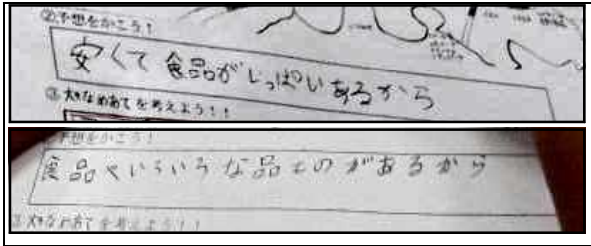 ②予想をかこう！
安くて食品がいっぱいあるから
③大きなめあてを考えよう！！
予想をかこう！
食品やいろいろな品ものがあるから
③大きなめあてを考えよう！！